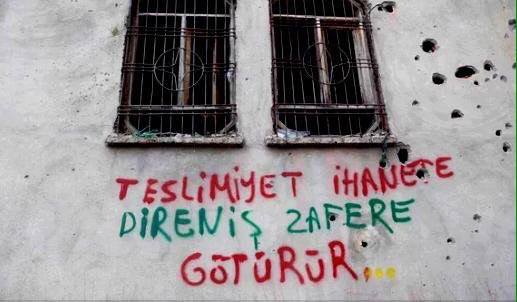 TESLİMİYET İHANETE
DİRENİŞ ZAFERE
GÖTÜRÜR...